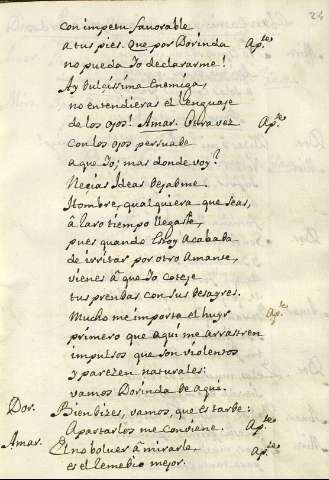 24
con impetu favorable
a tus pies. Que por Dorinda Aptes
no pueda Yo declararme!
Ay dulcissima Enemiga,
no entendieras el lenguaje
de los ojos! Amar. Otra vez Aptes
con los ojos persuade
a que Yo; mas donde voy?
Necias Ideas dejadme.
Hombre, qualquiera que seas,
â raro tiempo llegaste,
pues quando Estoy acabada
de irritar por otro Amante,
vienes â que Yo coteje
tus prendas con sus desayres.
Mucho me importa el huyr Aptes
primero que aqui me arrastren
impulsos que son violentos
y parezen naturales:
vamos Dorinda de aqui.
Dor. Bien dizes, vamos, que es tarde:
Apartarlos me conviene. Aptes
Amar. El no bolver â mirarle, Aptes
es el remedio mejor.